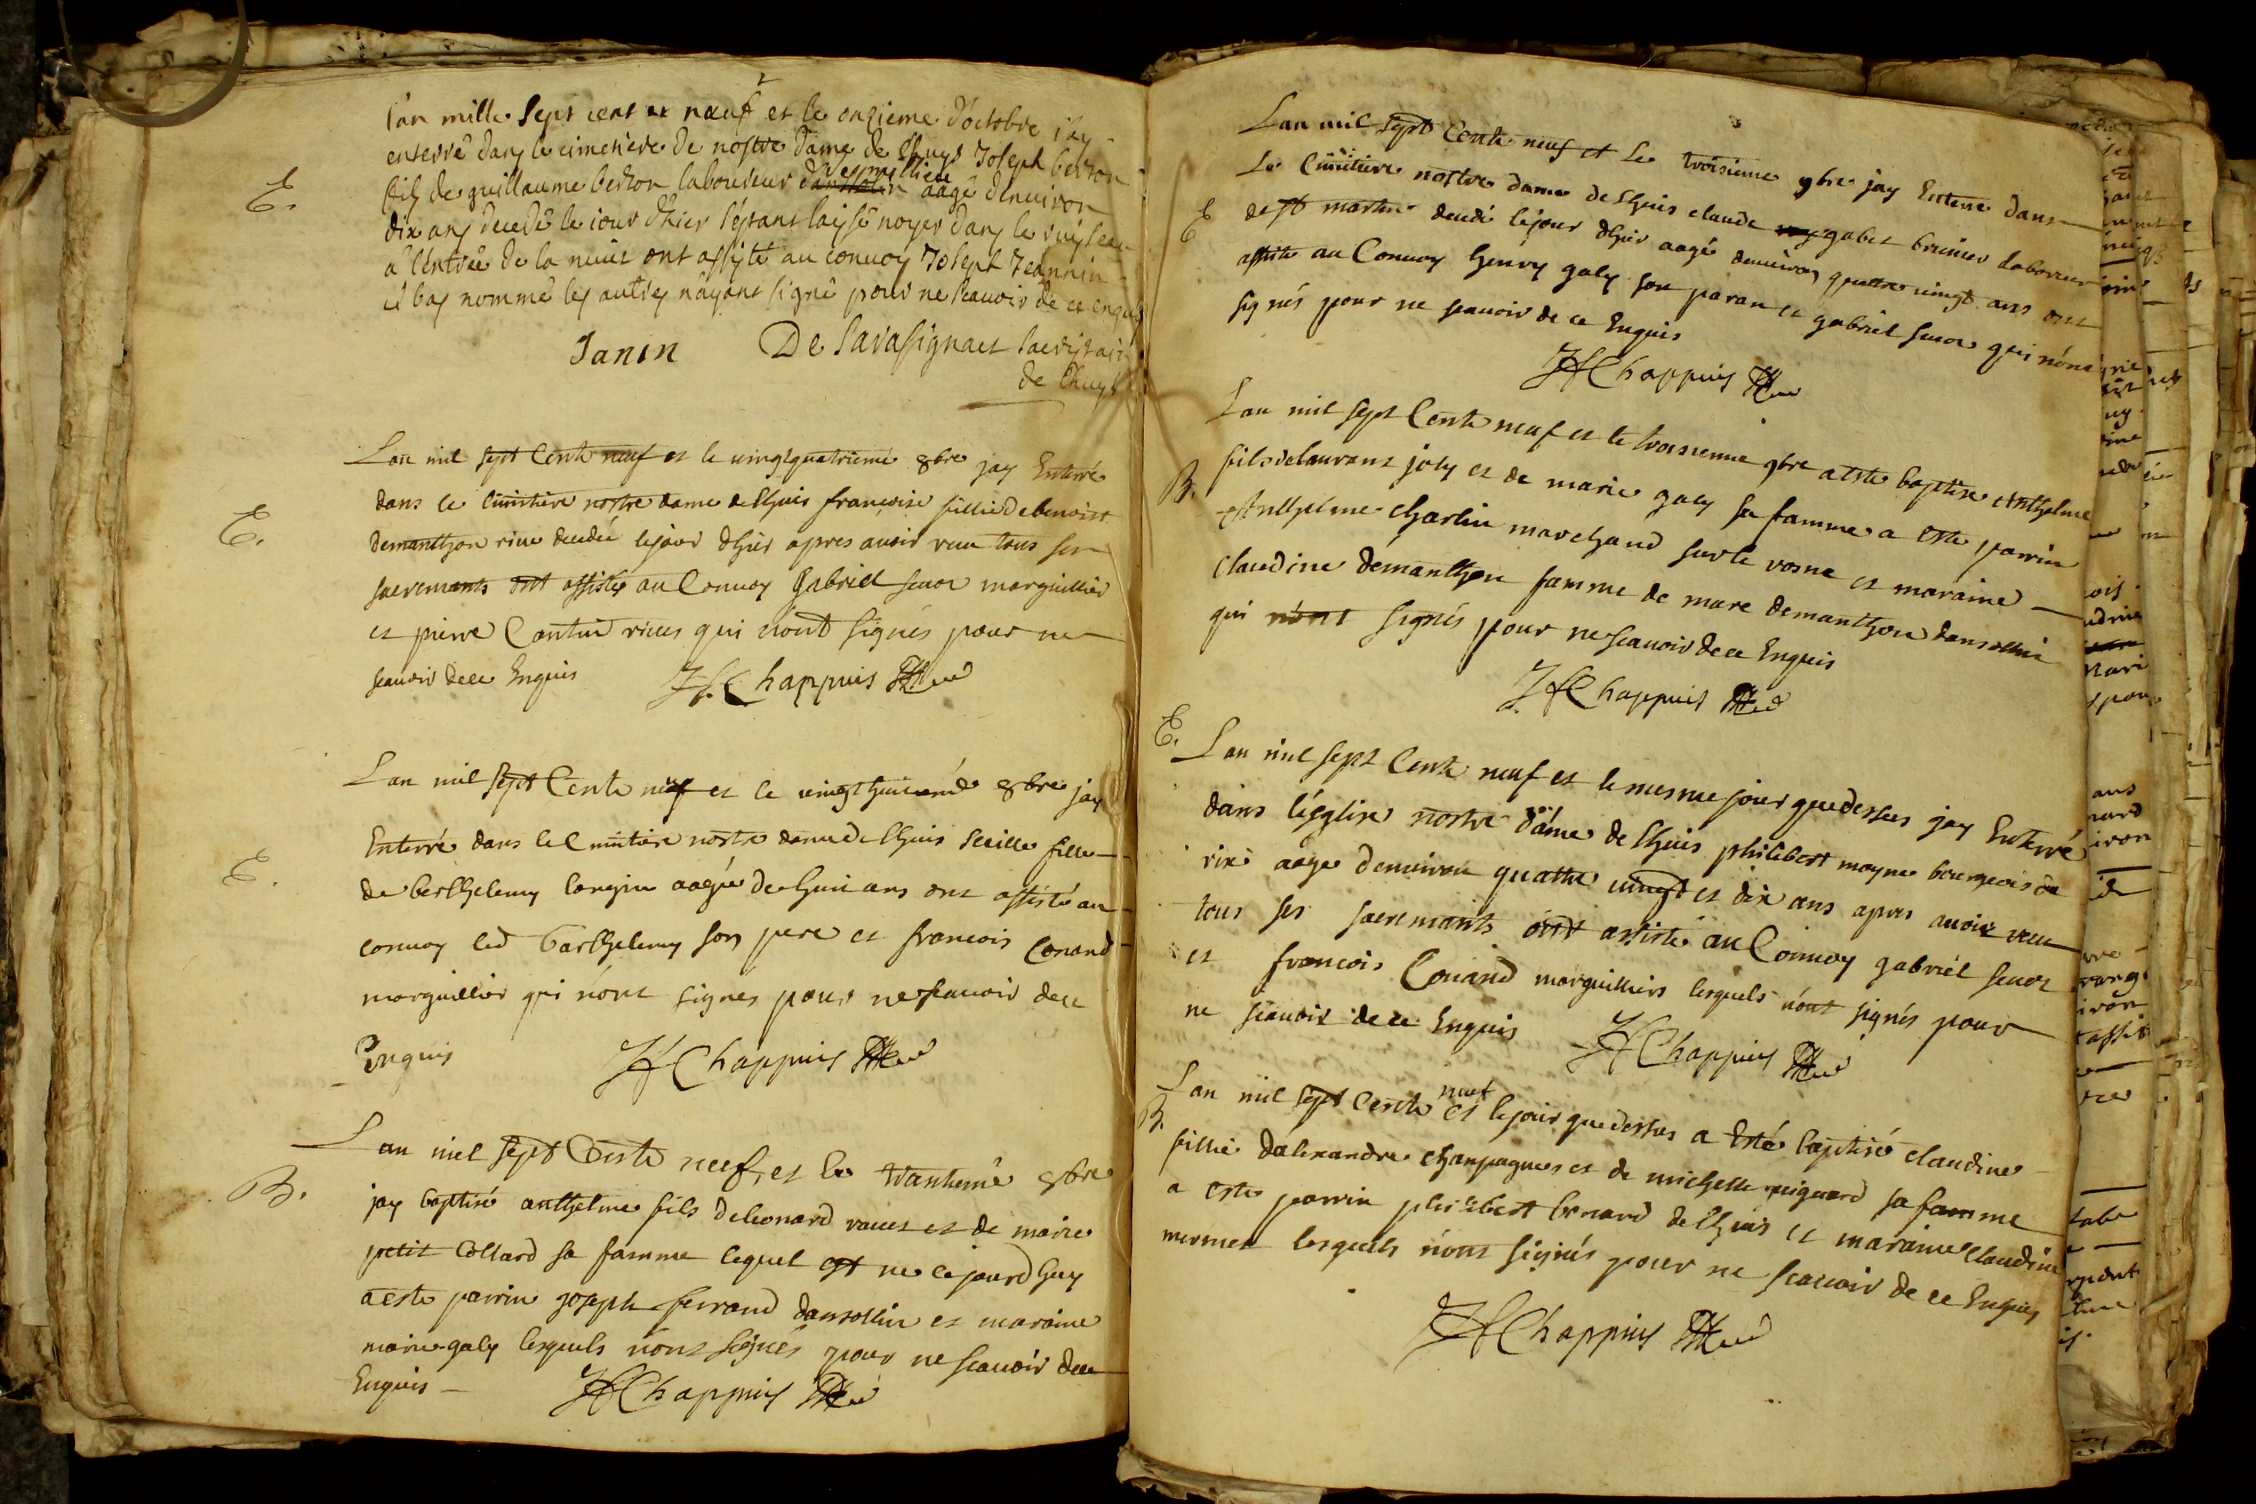 E.
lan mille Sept cent et nœuf et le onzieme d'octobre j'ay
enterré dans le cimetiere de nostre dame de Lhuys Joseph berton
fils de guillaume berton laboureur aagé denuiron
dix ans decedé le jour d'hier s'estant laissé noyer dans le ruisseau
a l'entrée de la nuict ont assisté au conuoy Joseph Jeannin
cy bas nommé les autres n'ayant signé pour ne scauoir de ce enquis
Janin De Sarasignaet sacristain
de Lhuys
E.
Lan mil sept Cents neuf et le uingtquatriemé 8bre jay Enterré
dans le Cimitiere nostre dame de Lhuis francoise fillie de benoist
demanthon rive decedée lejour dhier apres auoir receu tous ses
sacremants ont assistés au Conuoy Gabriel seuoz marguillier
et pierre Cantin qui nont signés pour ne
scauoir dece Enquis HChappuis
E.
Lan mil sept Cents neuf et le uingthuictiemé 8bre jay
Enterré dans le Cimitiere nostre dame de Lhuis fille
de berthelemy longin aagée de huit ans ont assisté au
conuoy led barthelemy son pere et francois Conand
marguillier qui nont signés pour ne scauoir dece
Enquis HChappuis
B.
Lan mil sept Cents neuf, et le trantiemé 8bre
jay baptisé anthelme fils deleonard et de marie
petit Collard sa famme lequel est ne cejourdhuy
a esté parrin joseph ferrand dansollin et maraine
marie galy lesquels nont signés pour ne scauoir dece
Enquis HChappuis
E
Lan mil sept Cents neuf et le troisieme 9bre jay Enterré dans
Le Cimitiere nostre dame de Lhuis claude gabet brunier Laboureur
de st martin decedé lejour dhier aagé denuiron quattre uingt ans ont
assisté au Conuoy henry galy son paran et gabriel seuoz qui nont
signés pour ne scauoir de ce Enquis
HChappuis
B.
Lan mil sept Cents neuf et le troisieme 9bre a esté baptisé Anthelme
fils delaurant joly et de marie galy sa famme a esté parrin
Anthelme charlin marchand sur le rosne et maraine
Claudine demanthon famme de marc demanthon dansollin
qui nont signés pour ne scauoir de ce Enquis
HChappuis
E.
Lan mil sept Cents neuf et le mesme jour quedessus jay Enterré
dans léglise nostre dáme de Lhuis philibert moyne bourgeois de
rix aage denuiron quattre uingt et dix ans apres auoir receu
tous ses sacremants ont assisté au Conuoy gabriel seuoz
et francois Conand marguilliers lesquels nont signés pour
ne scauoir de ce Enquis HChappuis
B.
Lan mil sept Cents neuf et le jour quedessus a esté baptisé claudine
fillie dalexandre champagne et de michelle mignard sa famme
a esté parrin philibert bonard de Lhuis et maraine Claudine
mermet lesquels nont signés pour ne scauoir de ce Enquis
HChappuis